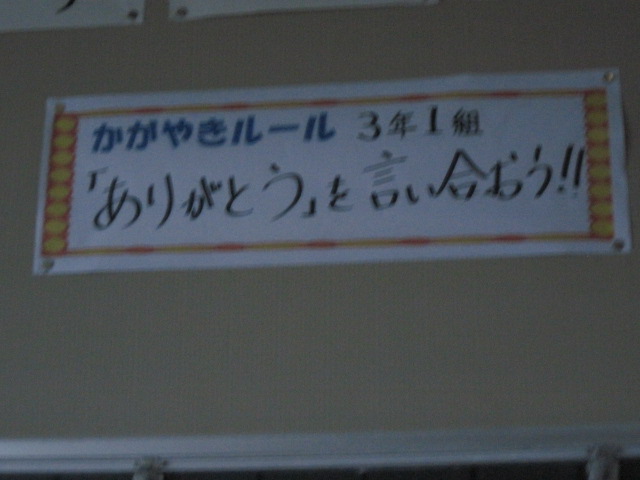 かがやきルール 3年1組
「ありがとう」を言い合おう!!